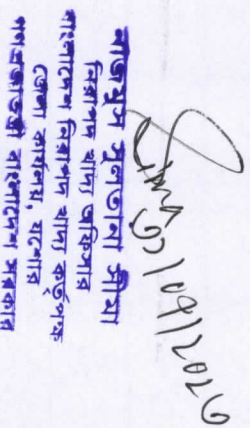 ০৩/০৭/২০২৩
নিরাপদ খাদ্য অফিসার
বাংলাদেশ নিরাপদ খাদ্য কর্তৃপক্ষ
জেলা কার্যালয়, যশোর
গণপ্রজাতন্ত্রী বাংলাদেশ সরকার